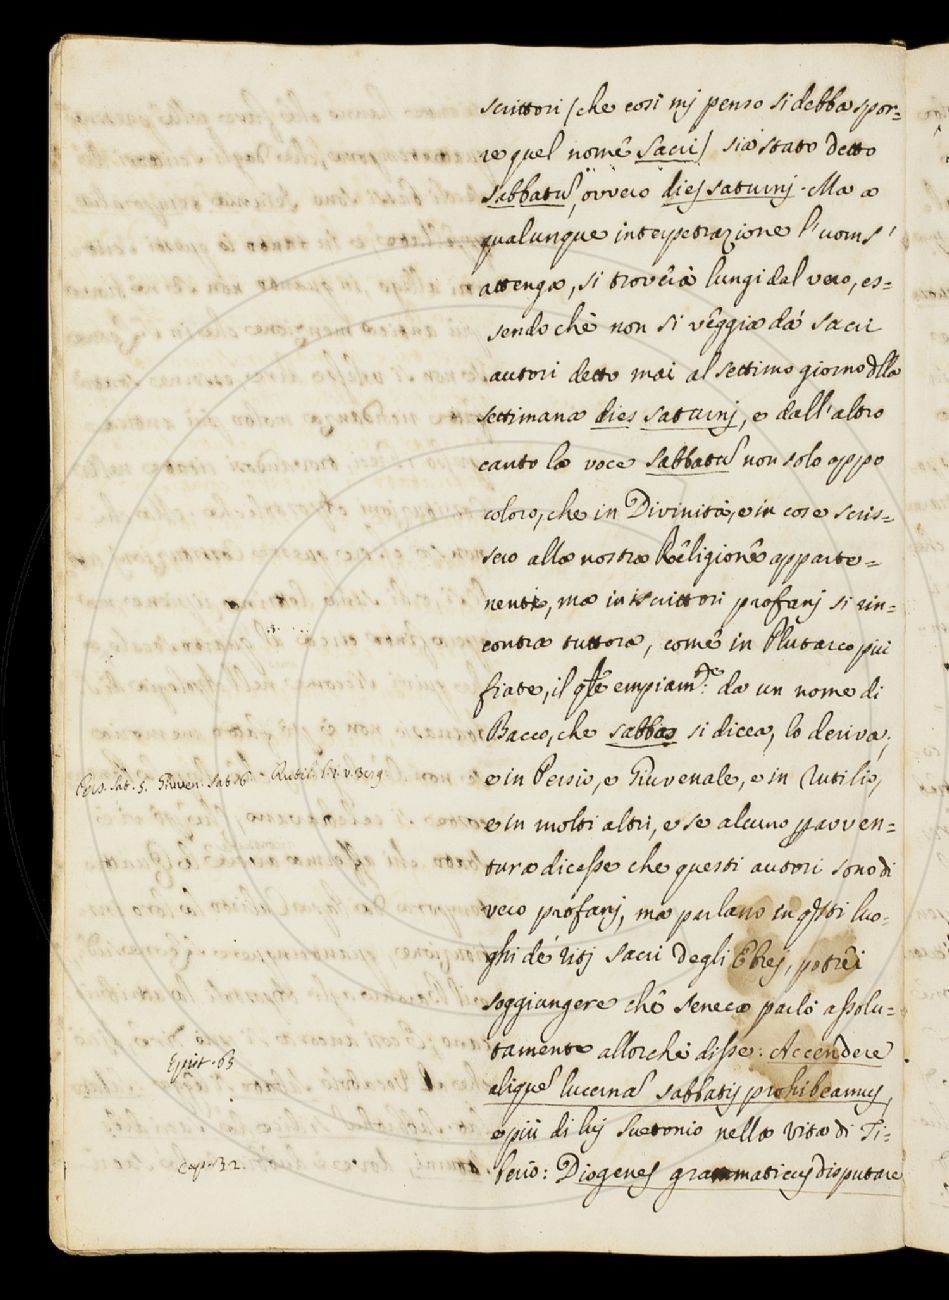 scrittori (che così mj penso si debba spor=
re quel nome Sacri) sia stato detto
Sabbatũ, ovvero diej saturnj. Ma a
qualunque interpetrazione l'uoms'
attenga, si troverà lungi dal vero, es=
sendo chè non si veggia dà sacri
autori detto mai al settimo giorno dlla
settimana dies saturnj, e dall'altro
canto la voce sabbatũ non solo appo
coloro, che in Divinità, e in cose scris=
sero alla nostra Religione apparte=
nenti, ma in scrittori profanj si rin=
contra tuttora, come in Plutarco più
fiate, il qle empiam.te da un nome di
Bacco, che sabbas si dicea, lo deriva,
Pers. Sat. 5. Giuven. Sat. 6. Rutil. l. 1. v.
e in Persio, e Giuvenale, e in Rutilio,
e in molti altri, e se alcuno pavven=
tura dicesse che questi autori sono di
vero profanj, ma parlano in qsti luo=
ghi dè ritj sacri degli Ebrej, potrei
soggiungere chè Seneca parlò assolu=
tamente allorchè disse: Accendere
Epist. 63
aliquẽ lucernã sabbatij prohibeamus,
e più di luj Suetonio nella vita di Ti=
Cap. 32.
berio: Diogenes grammaticus disputare